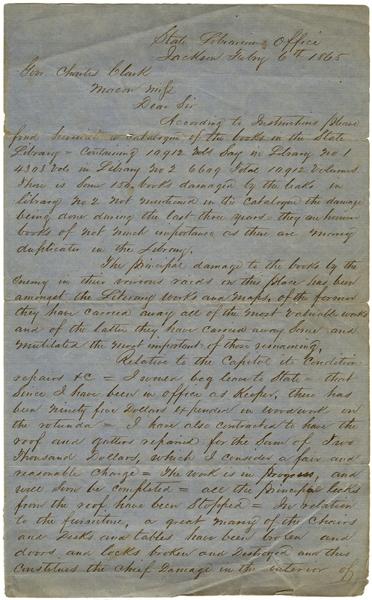 State Librarians Office
Jackson Feby 6th 1865
Gov Charles Clark
Macon Miss
Dear Sir
According to Instructions please
find herewith a catalogue of the books in the State
Library = containing 10912 Vols Say in Library No 1
4303 Vols in Library No 2 6609 Total 10912 Volumes.
There is some 150 books damaged by the leaks in
Library No 2 not mentioned in the catalogue the damage
being done during the last three years = they are
books of not much importance as there are many
duplicates in the Library.
The principal damage to the books by the
Enemy in their various raids on this place has been
amongst the Literary works and maps, of the former
they have carried away all of the most valuable works
and of the latter they have carried away some and
mutilated the most important of those remaining.
Relative to the Capitol its Condition
repairs &C = I would beg leave to State = that
Since I have been in office as Keeper, there has
been Ninety five Dollars expended in woodwork on
the rotunda = I have also contracted to have the
roof and gutters repaired for the Sum of Two
Thousand Dollars, which I consider a fair and
reasonable Charge = The work is in progress, and
will soon be completed = all the principal leaks
from the roof have been Stopped = In relation
to the furniture, a great many of the Chairs
and Desks and tables have been broken and
doors, and locks broken and Destroyed and this
Constitutes the chief Damage in the interior of